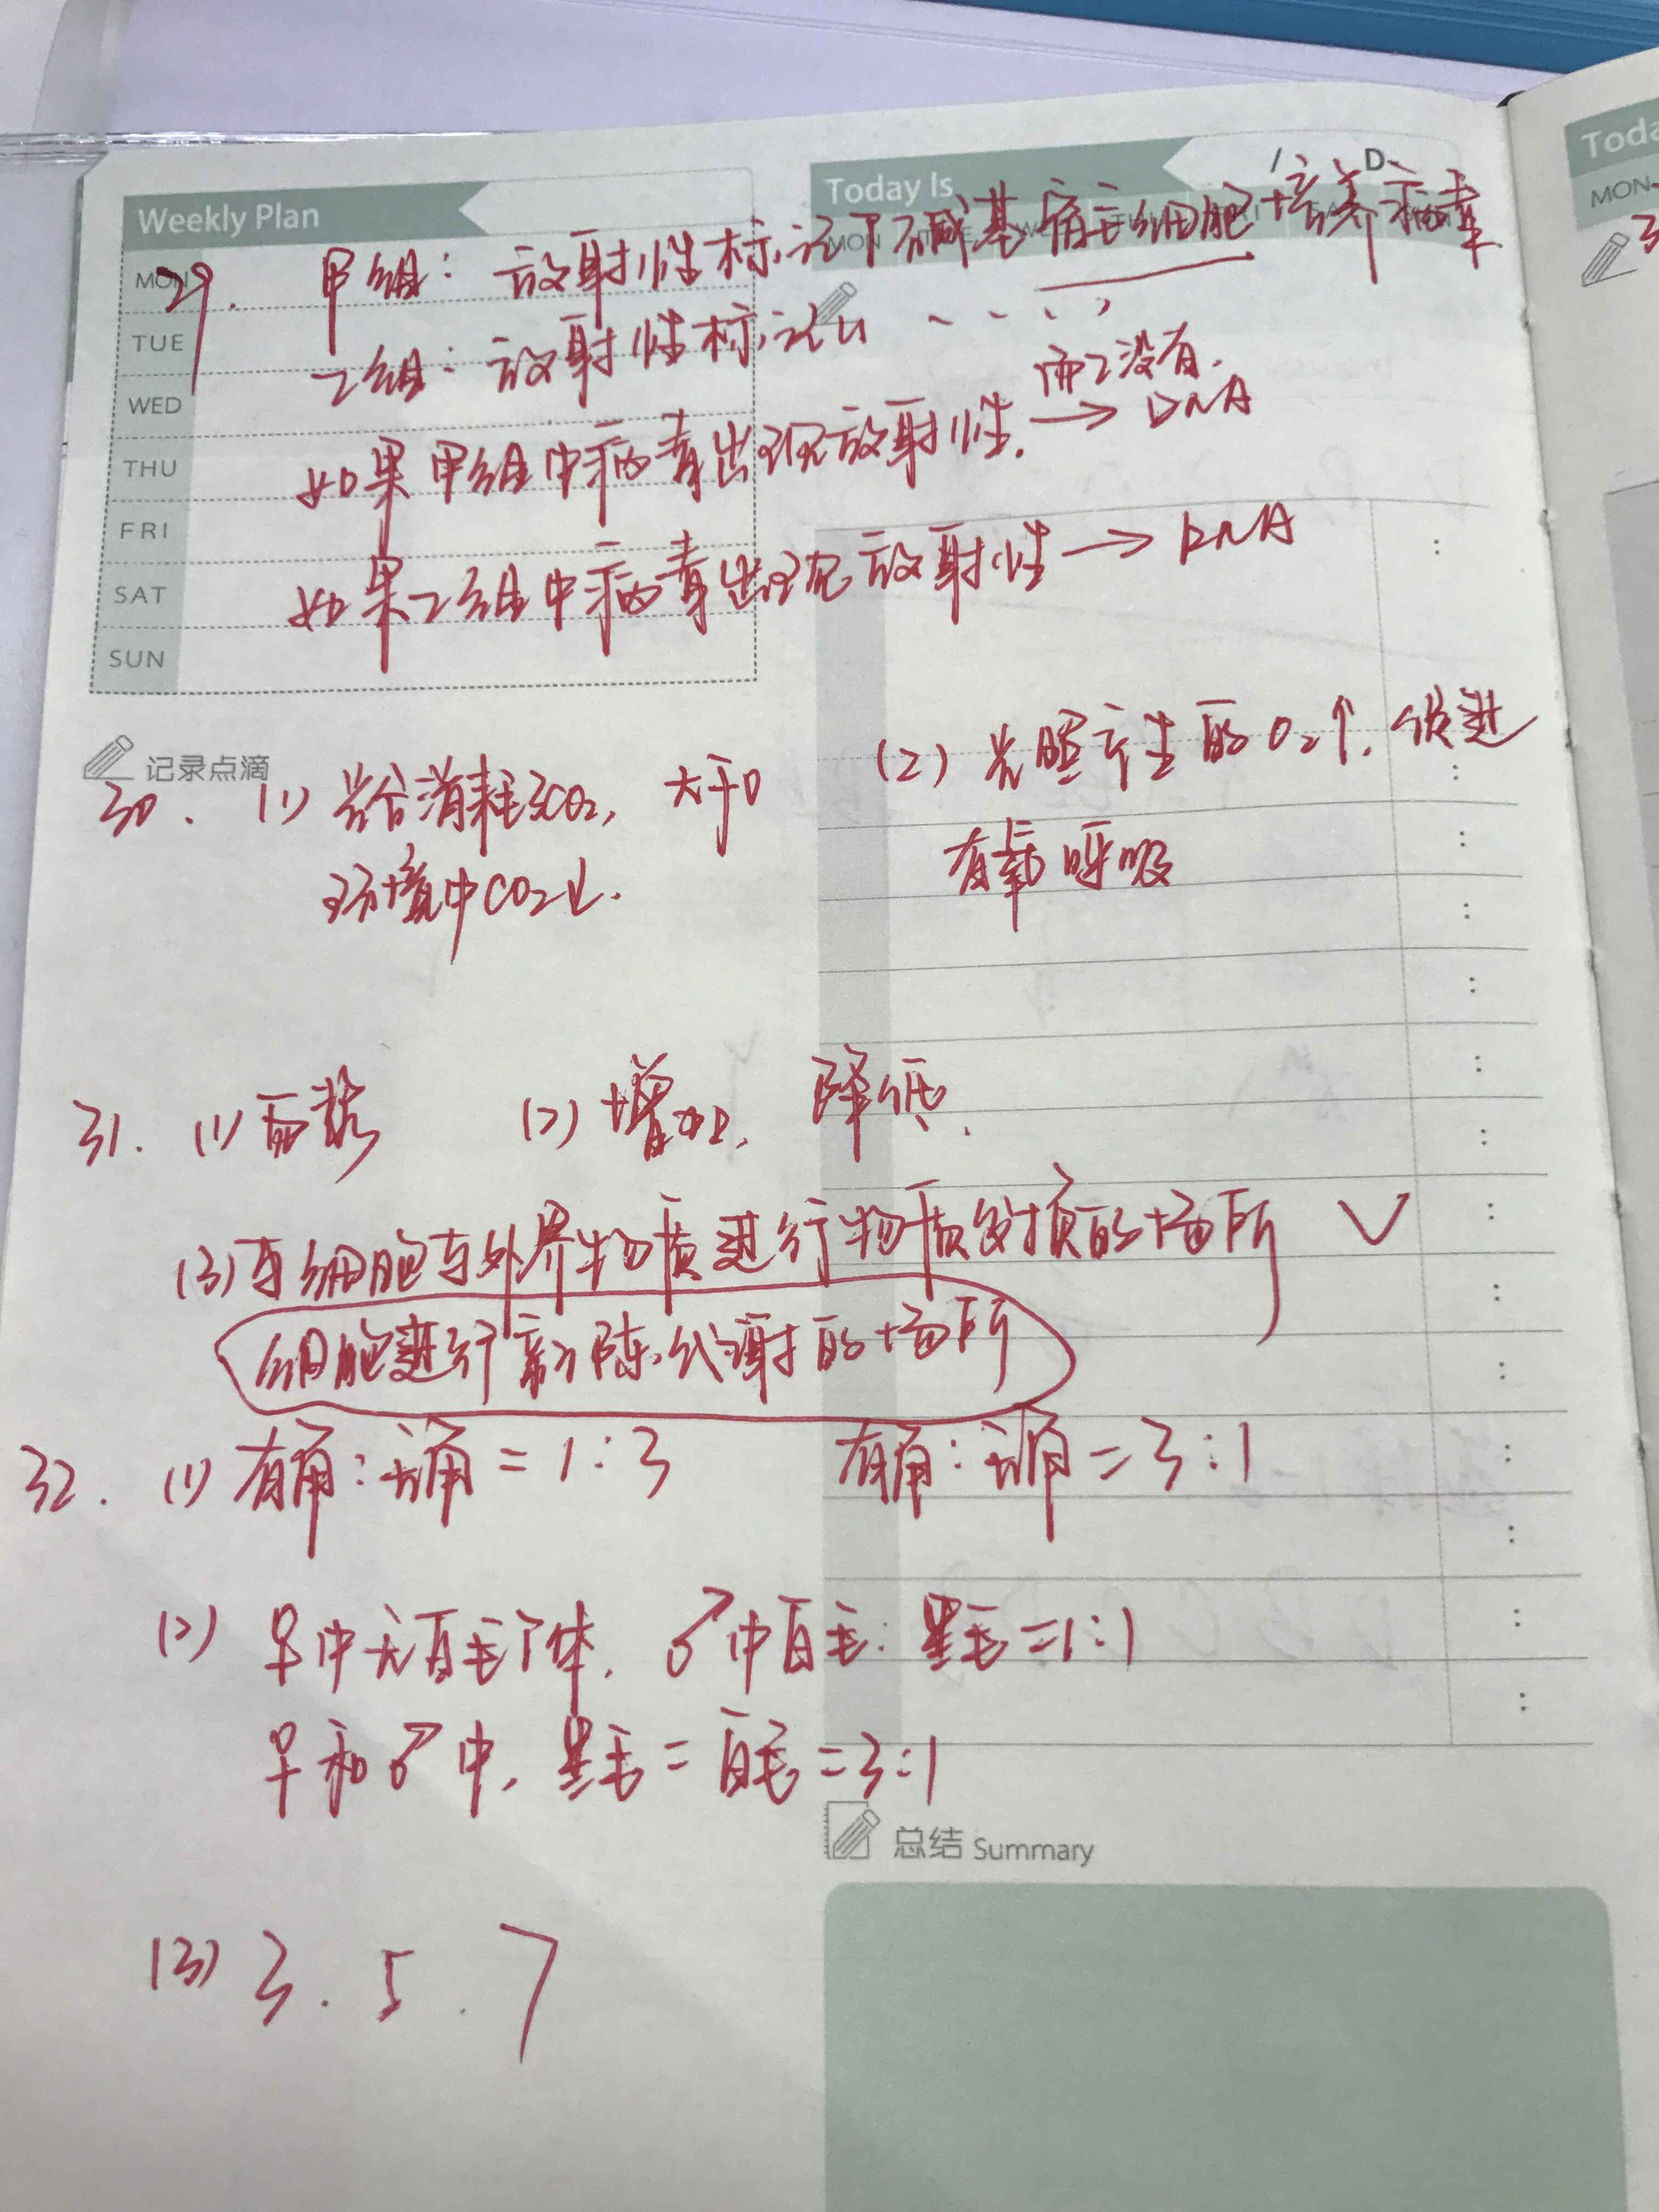 Weekly Plan
MON
TUE
WED
THU
FRI
SAT
SUN
Today Is
MON
D
Toda
MON
29. 甲组：放射性标记T碱基宿主细胞培养病毒
乙组：放射性标记U ‥‥
而乙没有.
如果甲组中病毒出现放射性. → DNA
如果乙组中病毒出现放射性 → RNA
记录点滴
30. (1) 光合消耗CO₂, 大于0
环境中CO₂↓.
(2) 光照产生的O₂↑. 促进
有氧呼吸
31. (1) 面积 (2) 增加, 降低.
(3) 与细胞与外界物质进行物质交换的场所 ✓
细胞进行新陈代谢的场所
32. (1) 有角：无角 = 1:3 有角：无角 = 3:1
(2) ♀中无白毛个体. ♂中白毛：黑毛=1:1
♀和♂中, 黑毛=白毛=3:1
(3) 3. 5. 7
总结 Summary